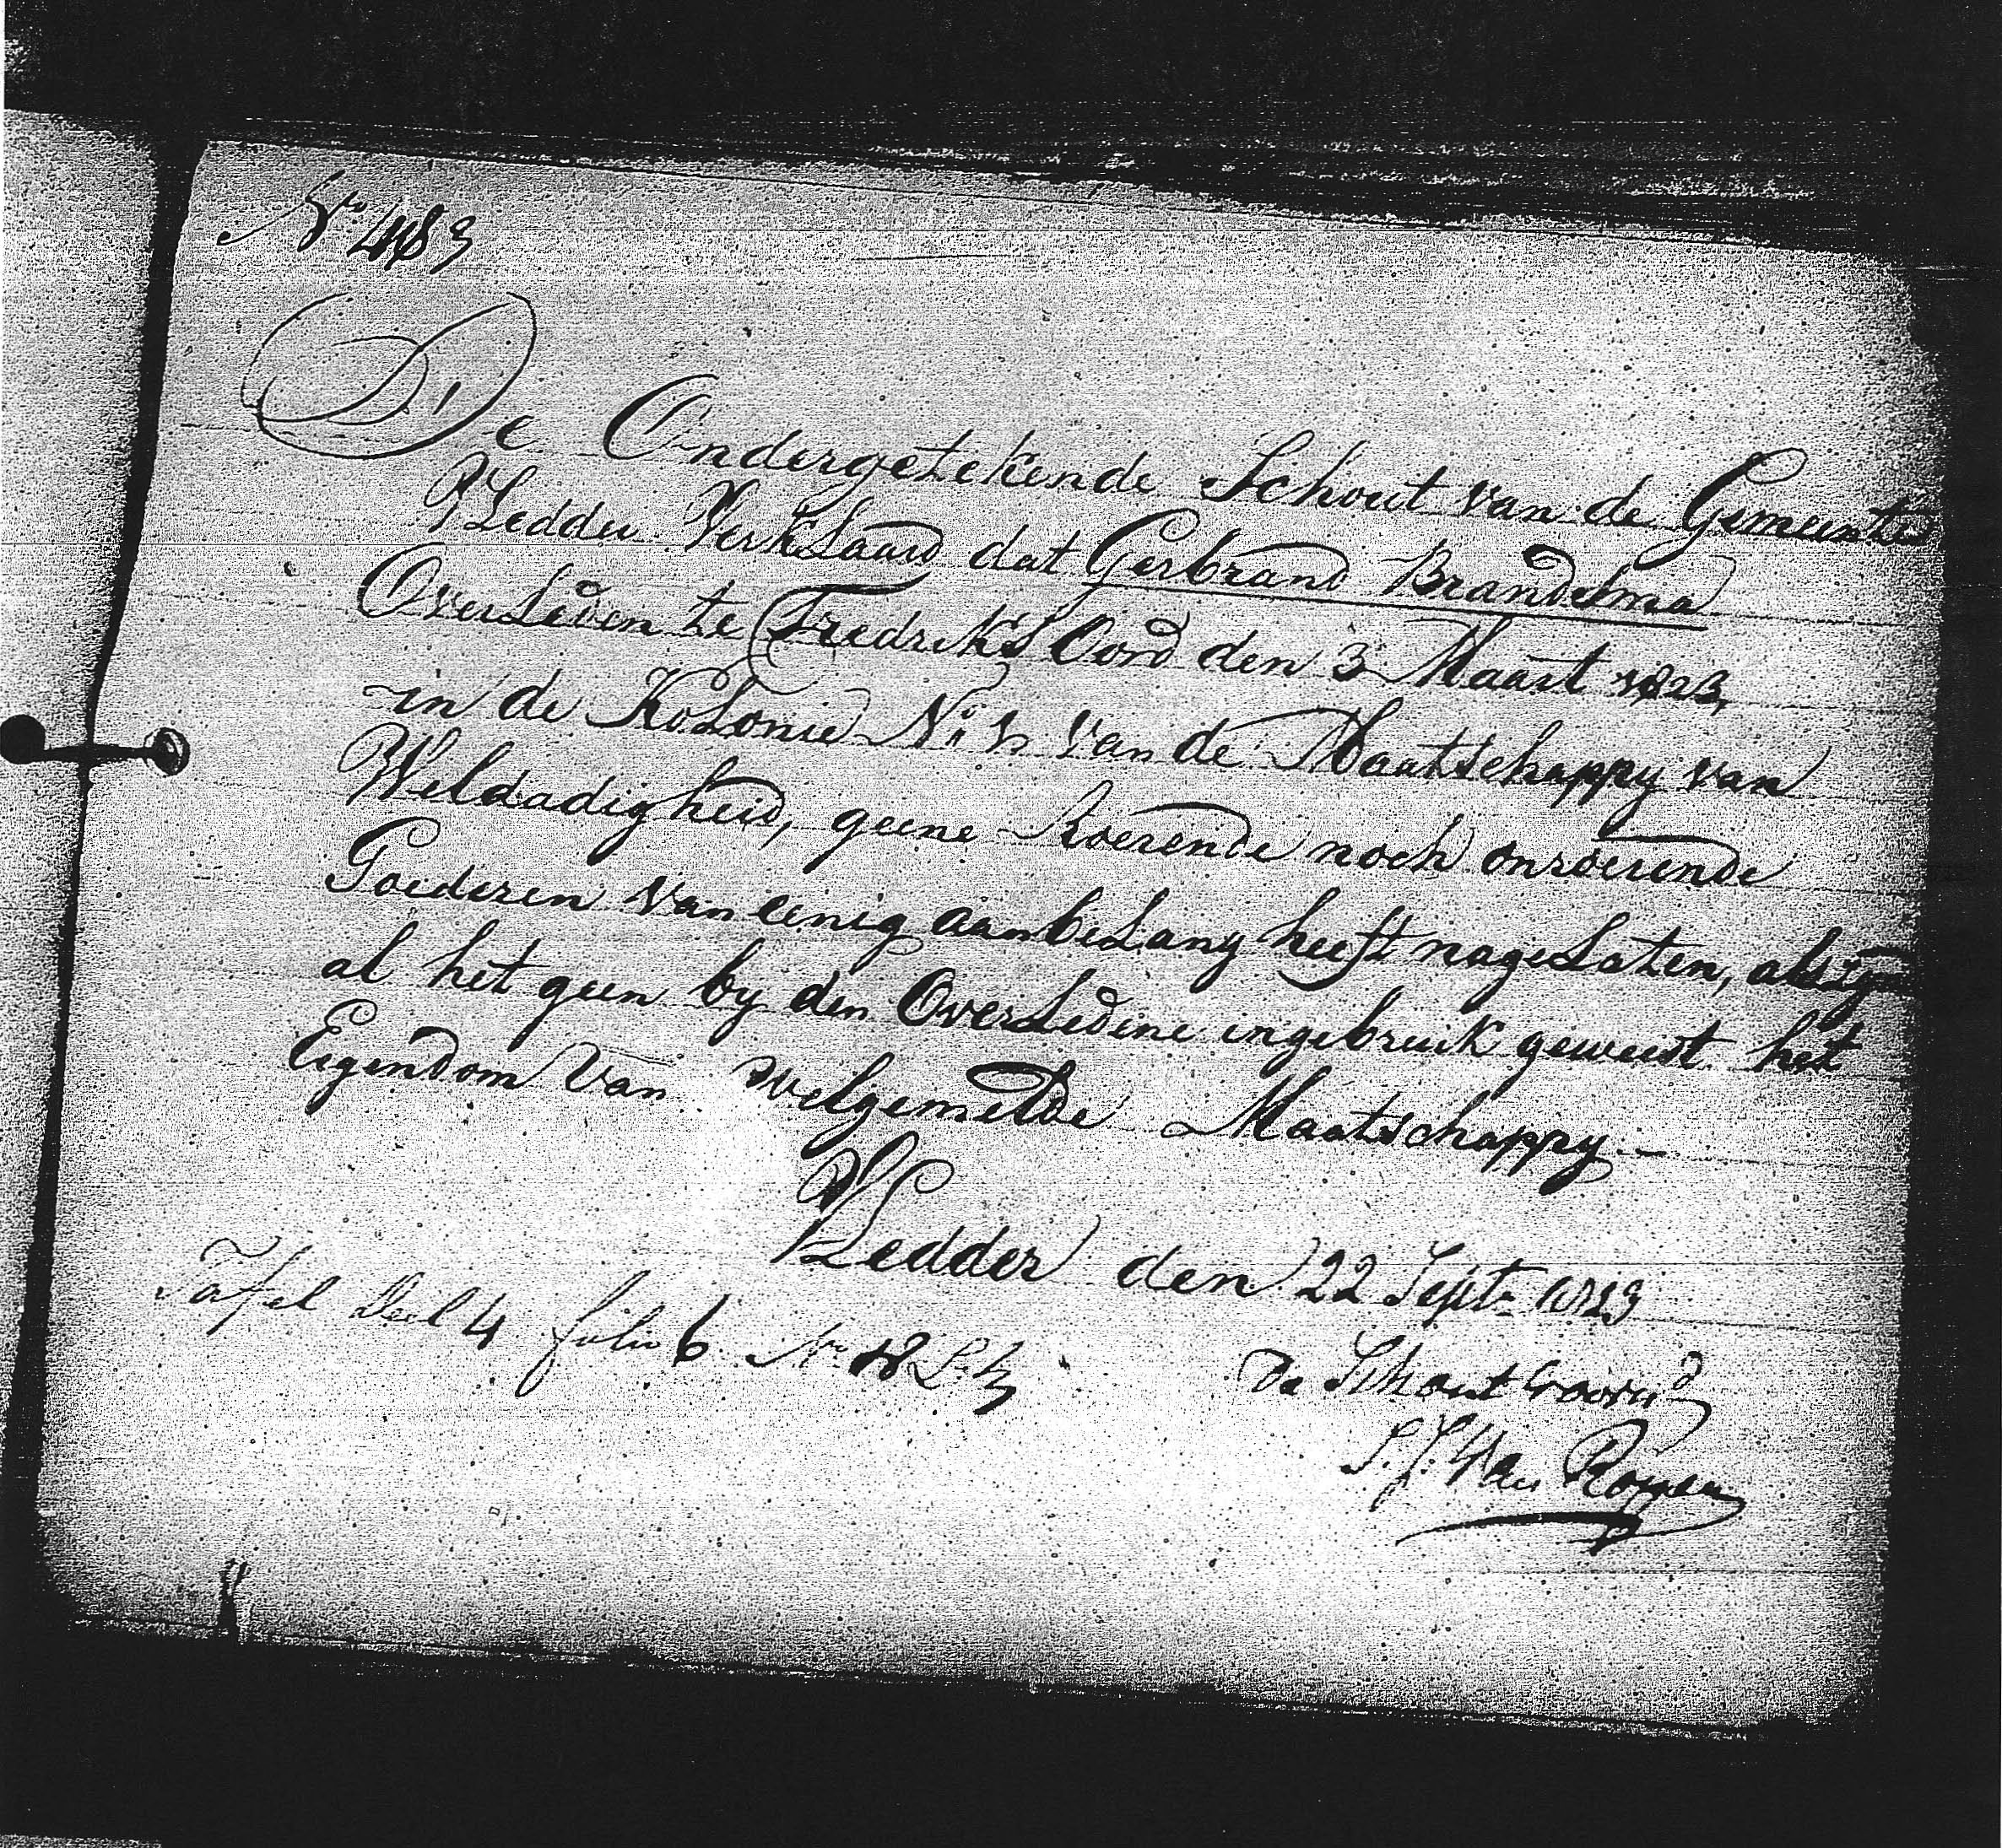 No 483
De Ondergetekende Schout van de Gemeente
Vledder Verklaard dat Gerbrand Brandsma
Overleden te Fredriks Oord den 3 Maart 1823,
in de Kolonie No van de Maatschappy van
Weldadigheid, geene Roerende noch onroerende
Goederen van eenig aanbelang heeft nagelaten, alzyn
al het geen by den Overledene ingebruik geweest het
Eigendom van welgemelde Maatschappy
Vledder den 22 Sept 1823
Tafel Deel 4 folio 6 No 18
De Schout voorn
S. J. Van Royen